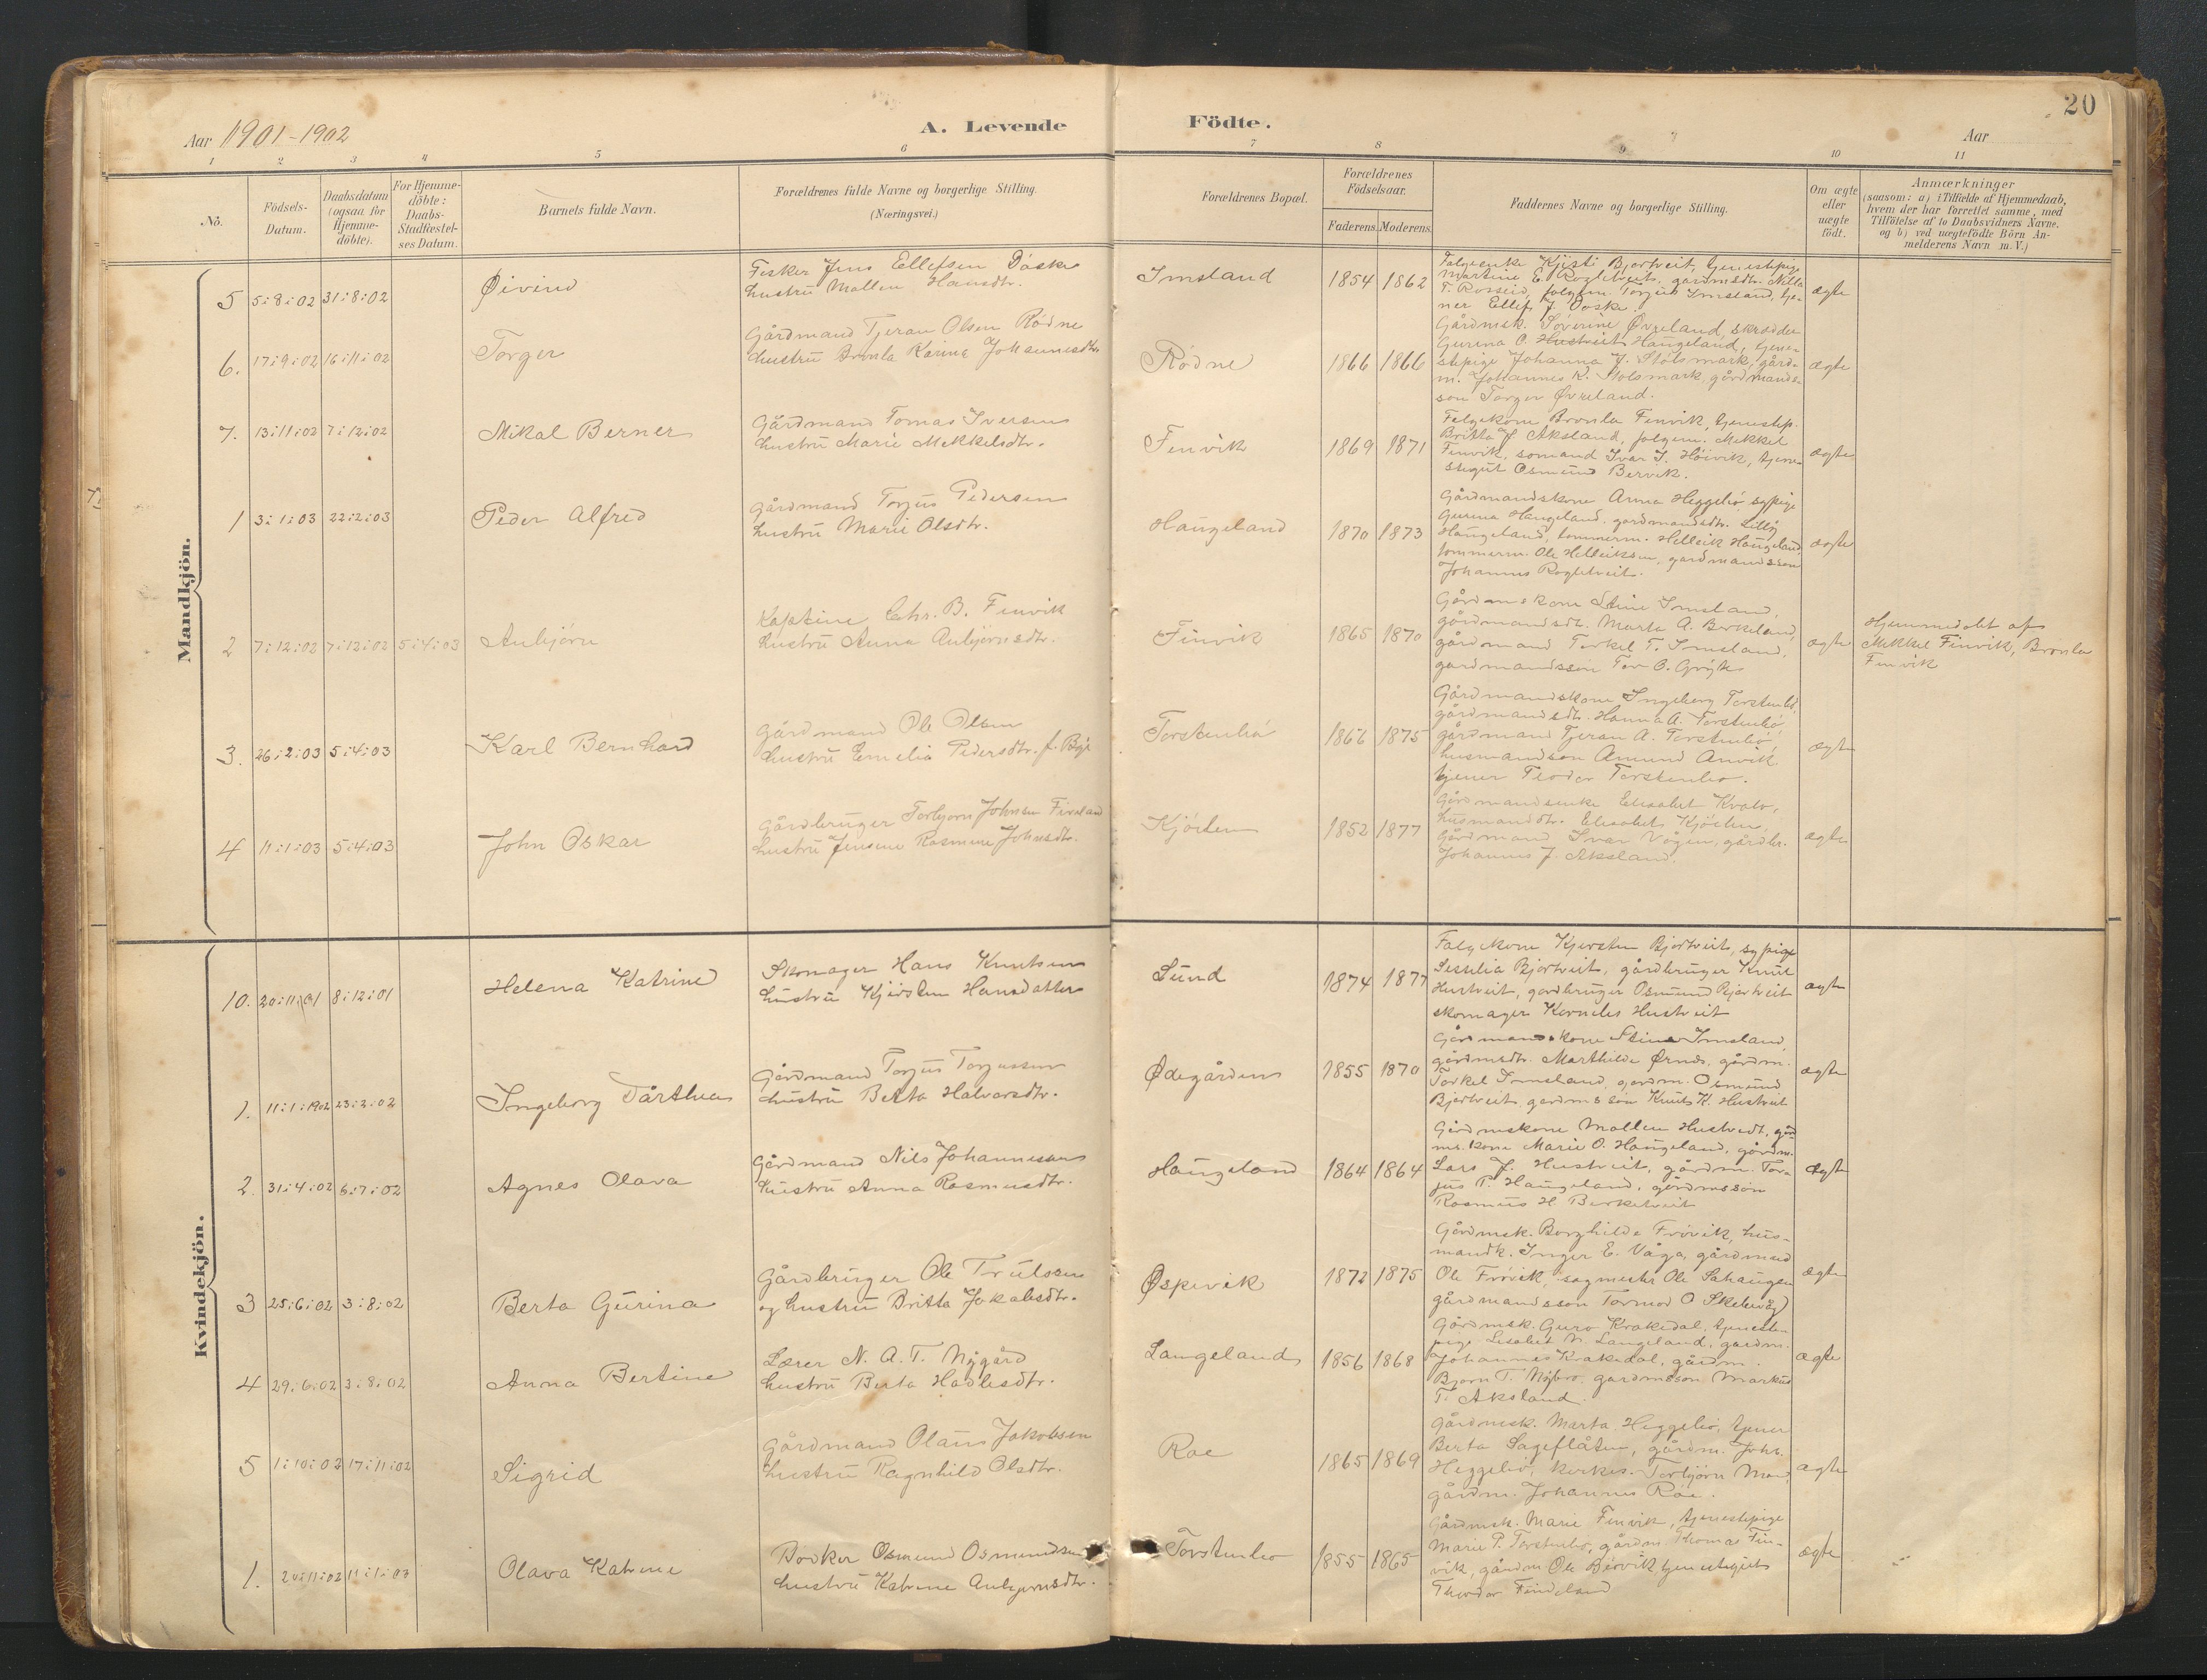 20
Aar 1901-1902
A. Levende
Födte.
Aar
1 2 3 4 5 6 7 8 9 10 11
No.
Födsels-
Datum.
Daabsdatum
(ogsaa for
Hjemme-
döbte).
For Hjemme-
döbte:
Daabs-
Stadfæstel-
ses Datum.
Barnets fulde Navn.
Forældrenes fulde Navne og borgerlige Stilling.
(Næringsvei.)
Forældrenes Bopæl.
Forældrenes
Födselsaar.
Faderens. Moderens.
Faddernes Navne og borgerlige Stilling.
Om ægte
eller
uægte
födt.
Anmærkninger
(saasom: a) i Tilfælde af Hjemmedaab,
hvem der har forrettet samme, med
Tilföielse af to Daabsvidners Navne,
og b) ved uægtefödte Börn An-
melderens Navn m. V.)
Mandkjön.
5 5:8:02 31:8:02 Øivind
Fisker Jens Ellefsen Døske
hustru Mallene Hansdtr.
Imsland 1854 1862
Følgeenke Kjisti Bjortveit, tjenestepige
Martine E. Rogletveit, gårdmsdtr. Nilla
T. Rosseid, følgem. Torjus Imsland, tje-
ner Ellef J. Døske.
ægte
6. 17:9:02 16:11:02 Torger
Gårdmand Tjeran Olsen Rødne
hustru Bronla Karina Johannesdtr.
Rødne 1866 1866
Gårdmsk. Severine Øvreland, skrædder
Gurina O. Hustveit Haugeland, tjene-
stepige Johanna J. Stølsmark, gård-
m. Johannes K. Stølsmark, gårdmands-
søn Torger Øvreland.
ægte
7. 13:11:02 7:12:02 Mikal Berner
Gårdmand Tomas Iversen
hustru Marie Mekkelsdtr.
Finvik 1869 1871
Følgekone Bronla Finvik, tjenestep.
Britta J Aksland, følgem. Mekkel
Finvik, sømand Ivar I. Høivik, tjene-
stegut Osmund Bervik.
ægte
1 3:1:03 22:2:03 Peder Alfred
Gårdmand Torjus Pedersen
hustru Marie Olsdtr.
Haugeland 1870 1873
Gårdmandskone Anna Heggelió, sypige
Gurina Haugeland, gårdmandsdtr. Lilly
Haugeland, tømmerm. Helleik Haugeland,
tømmerm. Ole Helleiksen, gårdmandssøn
Johannes Rogletveit.
ægte
2 7:12:02 7:12:02 5:4:03 Anbjørn
Kaptein Chr. B. Finvik
hustru Anna Anbjørnsdtr.
Finvik 1865 1870
Gårdmskone Stine Imsland,
gårdmandsdt. Marta A. Berkeland,
gårdmand Torkel T. Imsland,
gårdmandssøn Tor O.
ægte
Hjemmedøbt af
Mekkel Finvik, Bronla
Finvik
3. 26:2:03 5:4:03 Karl Bernhard
Gårdmand Ole Olsen
hustru Emelia Pedersdtr.
Torstenbø 1875
Gårdmandskone Ingeborg Torstenbø,
gårdmandsdtr. Hanna A. Torstenbø,
gårdmand Tjeran A. Torstenbø,
husmandsøn Amund Anvik,
tjener Teodor Torstenbø.
ægte
4 11:1:03 5:4:03 John Oskar
Gårdbruger Torbjørn Johnsen
hustru Jensine Rasmine Johnsdtr.
1852 1877
Gårdmandsenke Elisabet Kvale,
husmandsdtr. Elisabet
Gårdmand Iver Vågen, gårdbr.
Johannes J. Aksland.
ægte
Kvindekjön.
10. 20:11:01 8:12:01 Helena Katrine
Skomager Hans Knutsen
hustru Kjirsten Hansdatter
Sund 1874 1877
Følgekone Kjersten Bjortveit, sypige
Sesselia Bjortveit, gårdbruger Knut
Hustveit, gårdbruger Osmund Bjortveit
skomager Kornelis Hustveit
ægte
1. 11:1:1902 23:2:02 Ingeborg Dårthea
Gårdmand Torjus Torjussen
hustru Berta Halvorsdtr.
Ødegården 1855 1870
Gårdmandskone Stine Imsland,
gårdmsdtr. Marthilde Ørnes, gårdm.
Torkel Imsland, gårdm. Osmund
Bjortveit, gårdmssøn Knut K. Hustveit
ægte
2. 31:4:02 6:7:02 Agnes Olava
Gårdmand Nils Johannessen
hustru Anna Rasmusdtr.
Haugeland 1864 1864
Gårdmskone Mallene Hustvedt, gård-
ms.kone Marie O. Haugeland, gårdm.
Lars J. Hustveit, gårdm. Tor-
jus P. Haugeland, gårdmssøn
Rasmus H Berketveit
ægte
3 25:6:02 3:8:02 Berta Gurina
Gårdbruger Ole Trulssen
og hustru Britta Jakobsdtr.
Øspevik 1872 1875
Gårdmsk. Borghilde Frøvik, hus-
mandk. Inger E. Våga, gårdmand
Ole Frøvik, sagmester Ole Sahaugen
gårdmandssøn Tormod O Skeievåg
ægte
4 29:6:02 3:8:02 Anna Bertine
Lærer N. A. T. Nygård
hustru Berta Hadlesdtr.
Langeland 1856 1868
Gårdmsk. Guro Krakedal, tjeneste-
pige Lisabet N. Langeland, gårdm.
Johannes Krakedal, gårdm.
Bjørn T. Nybro, gårdmssøn Markus
T. Aksland.
ægte
5 1:10:02 17:11:02 Sigrid
Gårdmand Olaus Jakobsen
hustru Ragnhild Olsdtr.
Røe 1865 1869
Gårdmsk. Marta Heggelió, tjener
Berta Sageflåten, gårdm. Johs.
Heggelió, kirkes. Torbjørn Moe,
gårdm. Johannes Røe.
ægte
1. 20:11:02 11:1:03 Olava Katrine
Bødker Osmund Osmundsen
hustru Katrine Anbjørnsdtr.
Torstenbø 1855 1865
Gårdmsk. Marie Finvik, tjenestepige
Marie P. Torstenbø, gårdm. Thomas Fin-
vik, gårdm. Ole Børvik, tjenestegut
Theodor Findeland
ægte